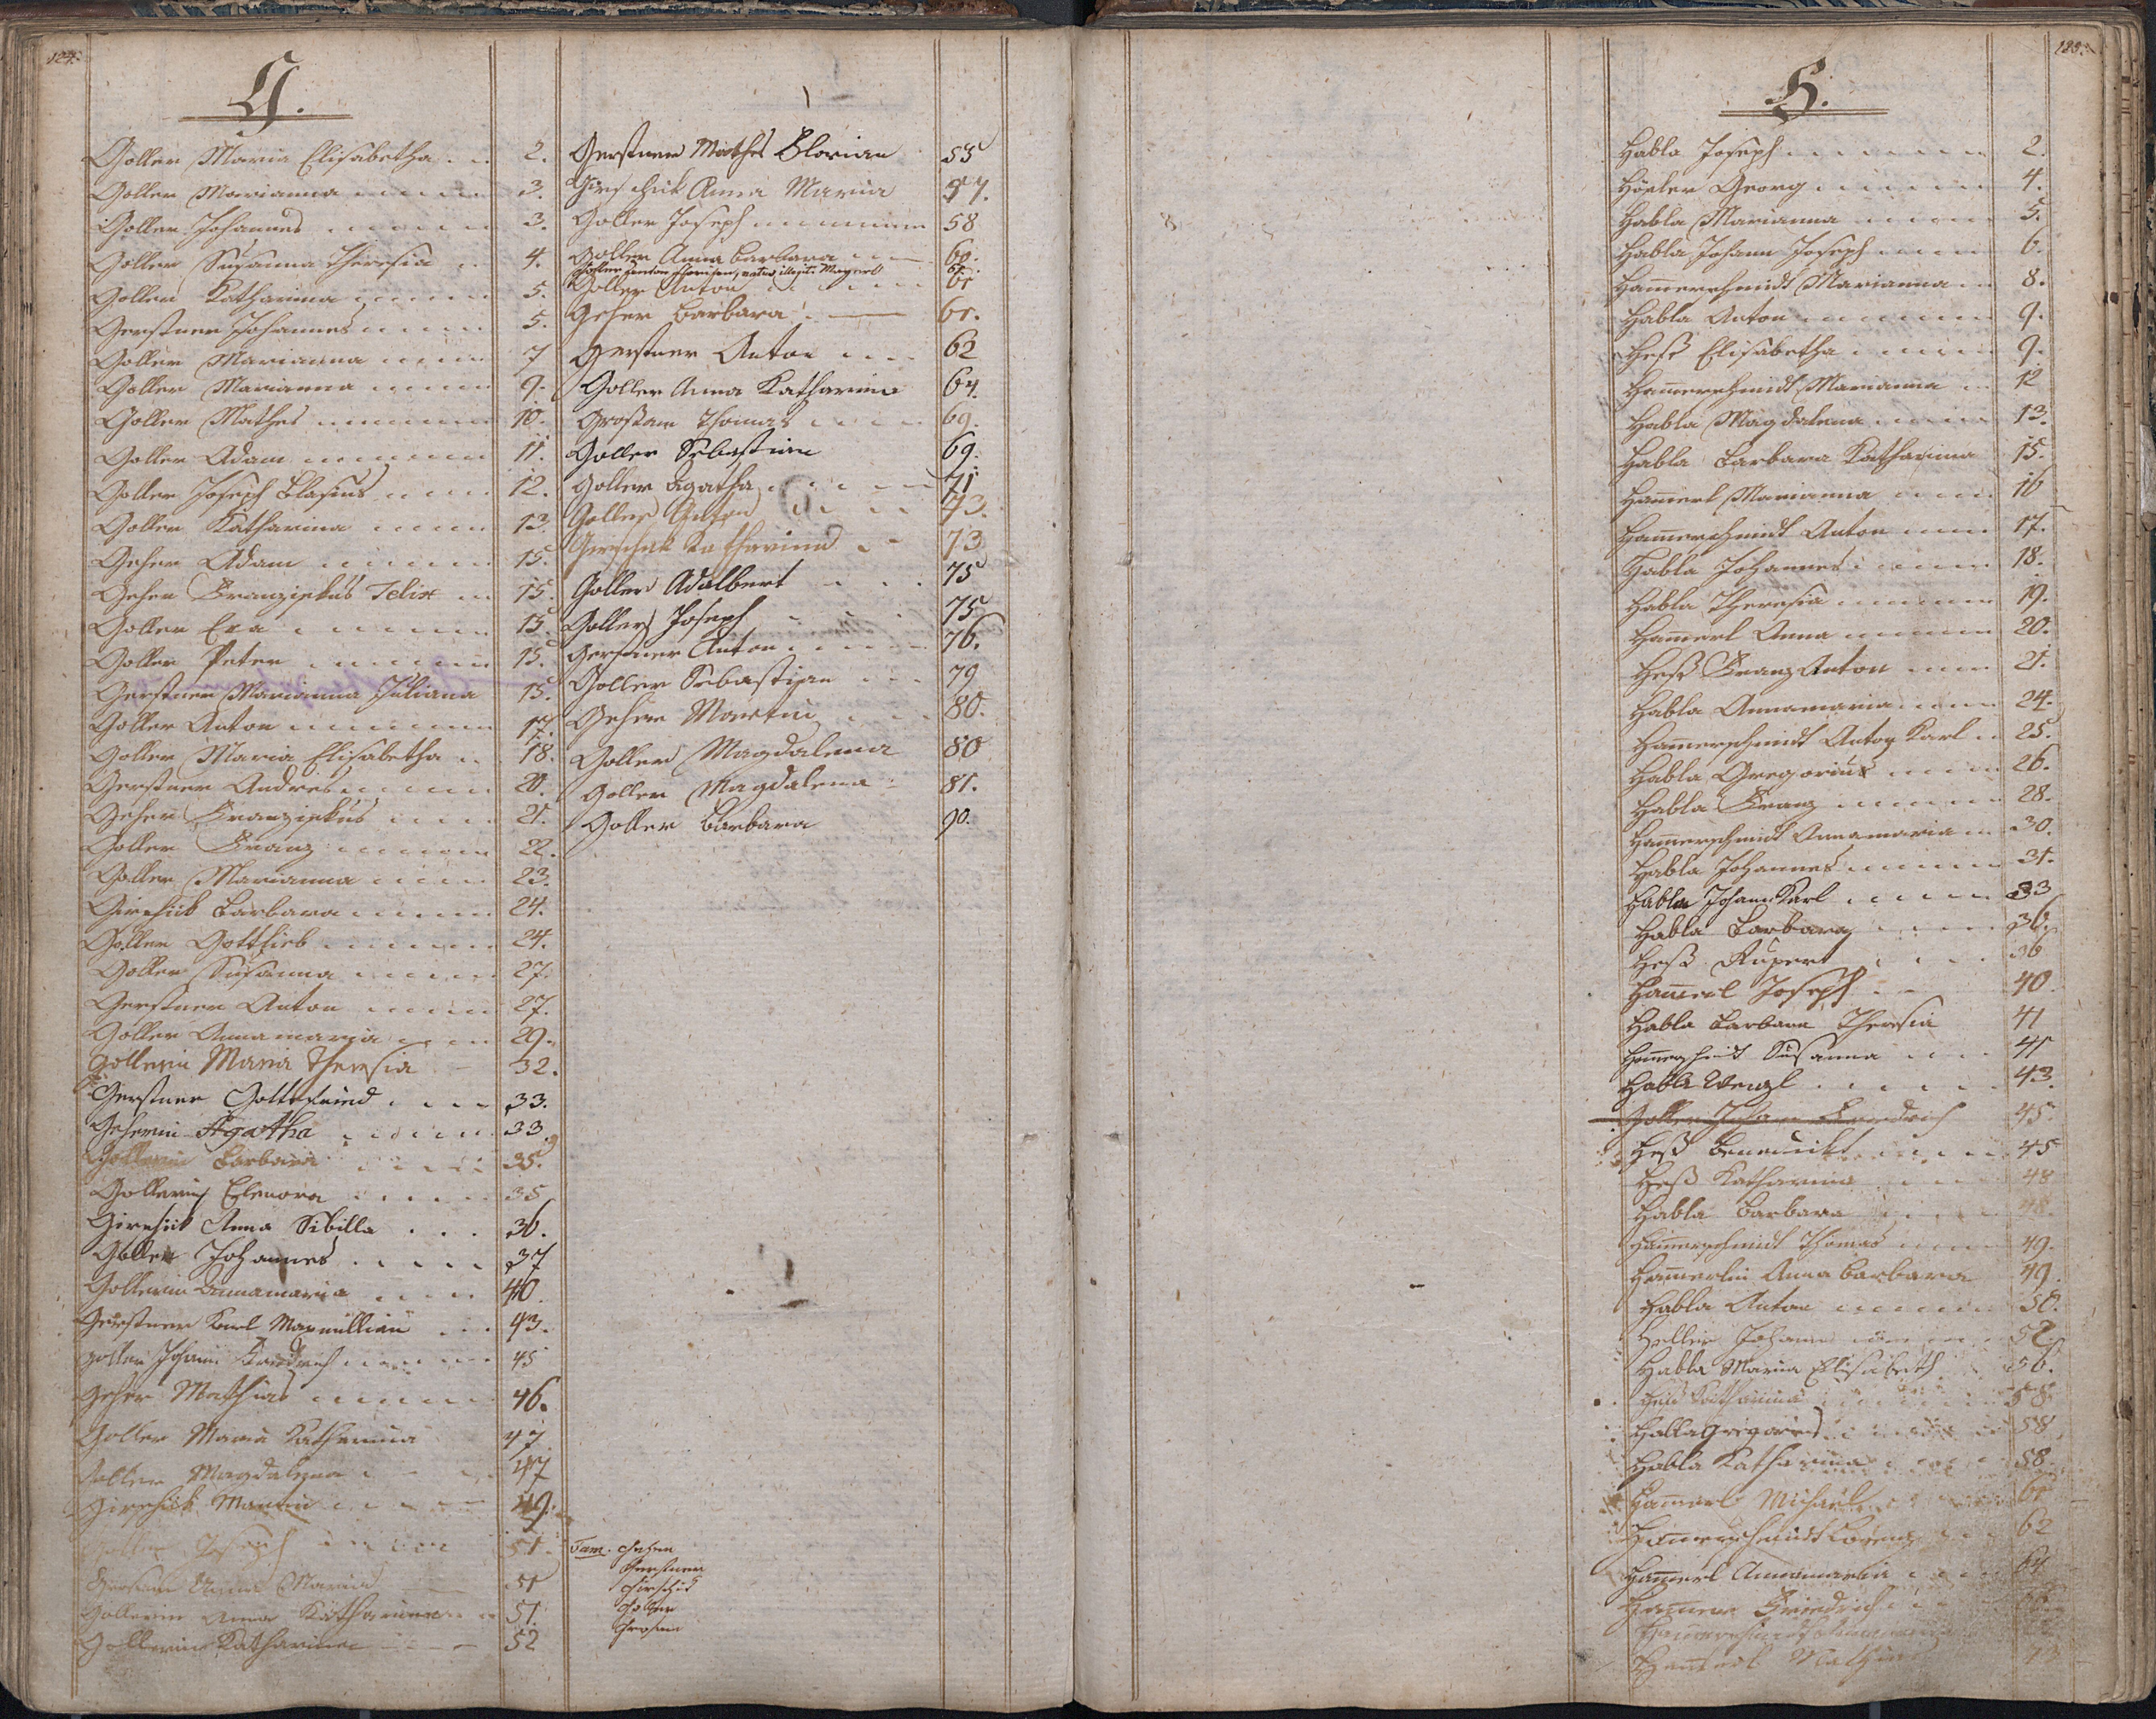 124.
G.
Goller Maria Elisabetha 2.
Goller Marianna 3.
Goller Johannes 3.
Goller Susanna Theresia 4.
Goller Katharina 5.
Gerstner Johannes 5.
Goller Marianna 7
Goller Marianna 9.
Goller Mathes 10.
Goller Adam 11.
Goller Joseph Blasius 12.
Goller Katharina 13.
Geher Adam 15.
Geher Franziskus Felix 15.
Goller Eva 15.
Goller Peter 15.
Gerstner Marianna Juliana 15.
Goller Anton 17.
Goller Maria Elisabetha 18.
Gerstner Andres 20.
Geher Franziskus 21.
Goller Franz 22.
Goller Marianna 23.
Girschik Barbara 24.
Goller Gottlieb 24.
Goller Susanna 27.
Gerstner Anton 27.
Goller Annamaria 29.
Gollerin Maria Theresia 32.
Gerstner Gottfried 33.
Geherin Agatha 33.
Gollerin Barbara 35.
Gollerin Elenora 35
Girschik Anna Sibilla 36.
Goller Johannes 37
Gollerin Annamaria 40.
Gerstner Karl Maxmillian 43.
Goller Johann Friedrich 45
Geher Mathias 46.
Goller Maria Katharina 47
Goller Magdalena 47
Girschik Martin 49.
Goller Joseph 51.
Anna Maria 51
Gollerin Anna Katharina 51.
Gollerin Katharina 52
Gerstner Mathes Florian 53
Girschik Anna Maria 57.
Goller Joseph 58
Goller Anna Barbara 60.
Goller Anton 61
Geher Barbara 61.
Gerstner Anton 62
Goller Anna Katharina 64.
Grosam Thomas 69.
Goller Sebastian 69.
Goller Agatha 71
Goller Anton 73.
Girschik Katharina 73
Goller Adalbert 75
Goller Joseph 75
Gerstner Anton 76.
Goller Sebastian 79
Geher Martin 80.
Goller Magdalena 80
Goller Magdalena 81.
Goller Barbara 90.
Fam. Geher
Gerstner
Girschik
Goller
Grosam
H.
Habla Joseph 2.
Georg 4.
Habla Marianna 5.
Habla Johann Joseph 6.
Hamerschmidt Marianna 8.
Habla Anton 9.
Heß Elisabetha 9.
Hamerschmidt Marianna 12
Habla Magdalena 13.
Habla Barbara Katharina 15.
Hamerl Marianna 16
Hamerschmidt Anton 17.
Habla Johannes 18.
Habla Theresia 19.
Hamerl Anna 20.
Heß Franz Anton 21.
Habla Annamaria 24.
Hamerschmidt Anton Karl 25.
Habla Gregorius 26.
Habla Franz 28.
Hamerschmidt Annamaria 30.
Habla Johannes 31.
Habla Johann Karl 33
Habla Barbara 36.
Heß Rupert 36
Hamerl Joseph 40.
Habla Barbara Theresia 41
Hamerschmidt Susanna 41
Habla Wenzl 43.
Goller Johann Friedrich 45.
Heß Benedickt 45
Heß Katharina 48
Habla Barbara 48.
Hamerschmidt Thomas 49.
Hamerlin Anna Barbara 49.
Habla Anton 50.
Heller Johann 52.
Habla Maria Elisabeth 56.
Heß Katharina 58
Habla Grigorius 58
Habla Katharina 58.
Hamerl Michael 61
Hamerschmidt Lorenz 62
Hamerl Annamaria 64
Friedrich
Hamerl Mathias